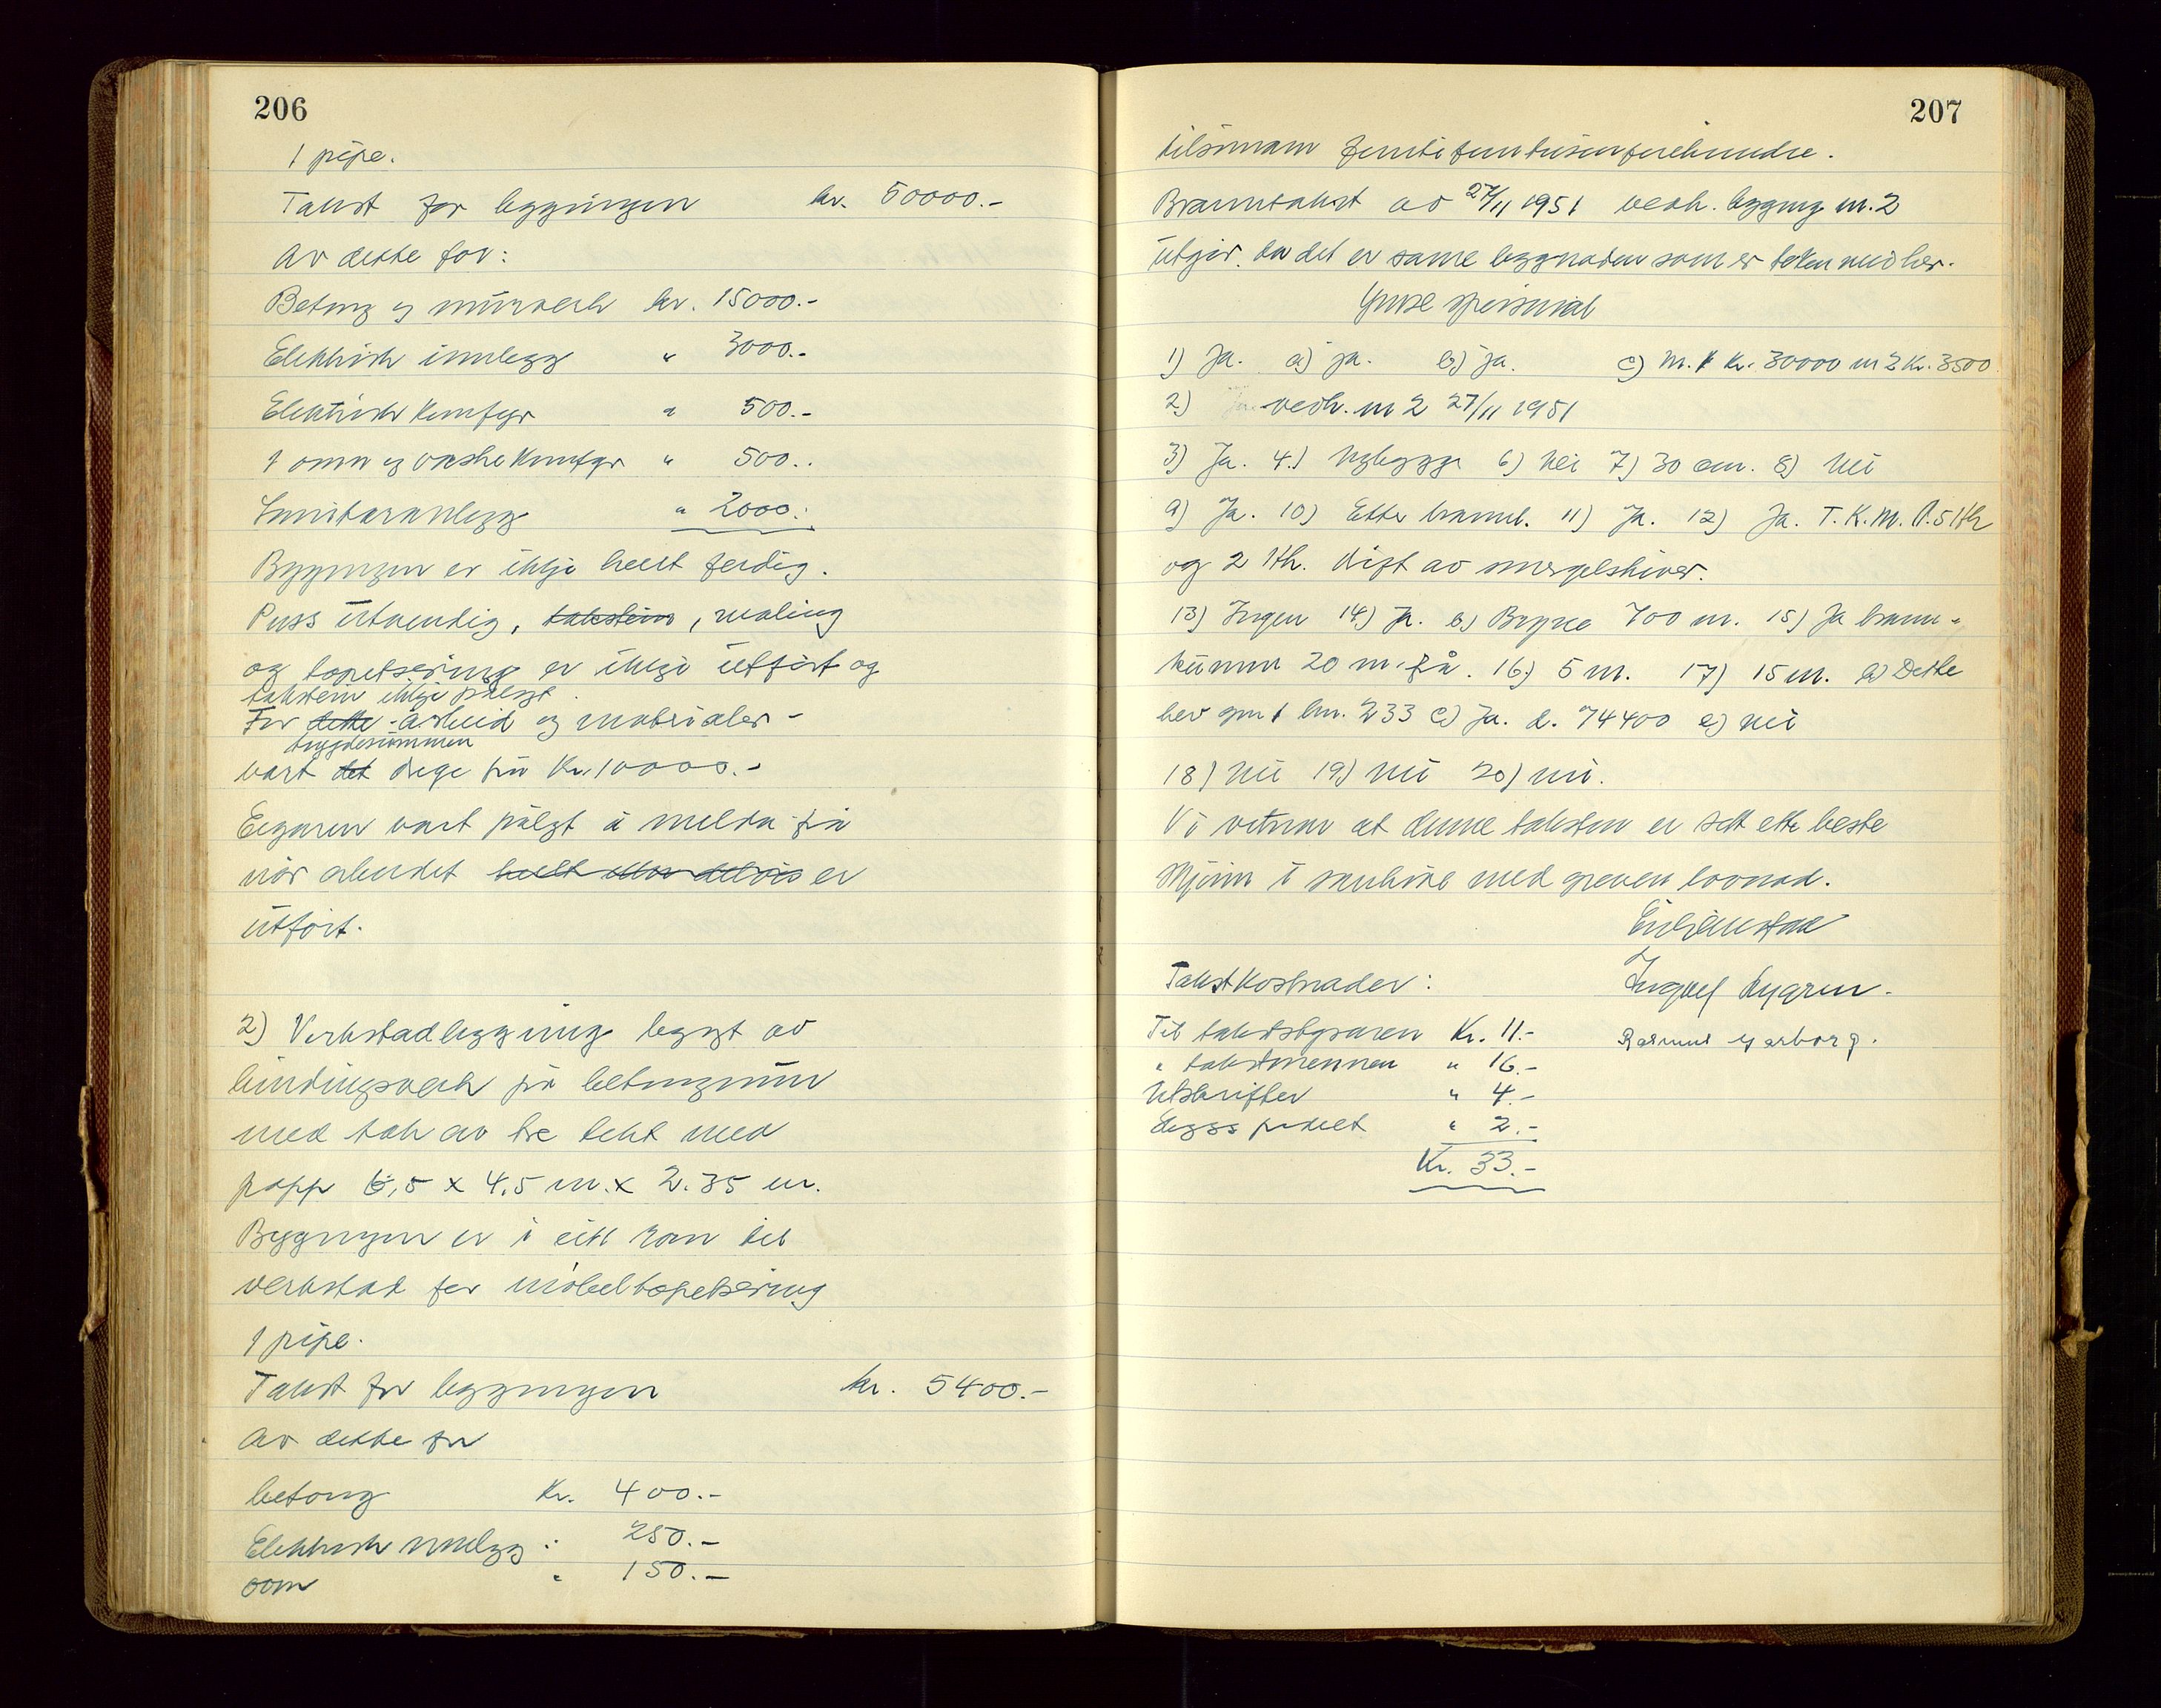 206
1 pipe.
Takst for byggningen kr. 50000.-
Av dette for:
Betong og murverk kr. 15000.-
Elektrisk innlegg " 3000.-
Elektrisk Komfyr " 500.-
1 omn og vaske Komfyr " 500..
Sanitæranlegg " 2000.-
Bygningen er ikkje heilt ferdig.
Puss utvendig, takstein, maling
og tapetsering er ikkje utført og
takstein ikkje pålagt.
For dette arbeid og materialer -
trygdesummen
vart det drege frå Kr. 10000.-
Eigaren vart pålagt å melda frå
når arbeidet heilt eller delvis er
utført.
2) Verkstadbyggning byggt av
bindingsverk på betongmur
med tak av tre tekt med
papp 6,5 x 4,5 m. x 2.35 m.
Bygningen er i eitt rom til
verkstad for møbeltapetsering
1 pipe.
Takst for byggningen kr. 5400.-
Av dette for
betong Kr. 400.-
Elektrisk innlegg : 250.-
omn " 150.-
207
tilsaman femti fem tusen firehundre.
Branntakst av 27/11 1951 vedk. bygging nr. 2
utgår, da det er same byggnaden som er teken med her.
Ymse spursmål
1) Ja. a) ja. b) ja. c) Nr. 1 Kr. 30000 nr 2 Kr. 3500
2) vedk. nr 2 27/11 1951
3) Ja. 4.) Nybygge 6) Nei 7) 30 cm. 8) Nei
9) Ja. 10) Etter brannl. 11) Ja. 12) Ja. T.K.M. 0.5 Hk
og 2 Hk. drift av smergelskiver.
13) Ingen 14) Ja. b) Bryne 700 m. 15) Ja brann-
kummen 20 m. frå. 16) 5 m. 17) 15 m. b) Dette
br. 233 c) Ja. d. 74400 e) nei
18) nei 19) nei 20) nei.
Vi vitnar at denne taksten er sett etter beste
skjønn i samhøve med greven lovnad.
Takstkostnader:
Til takststyraren Kr. 11.-
" takstmennen " 16.-
Utskrifter " 4.-
" 2.-
Rasmus Garborg.
Kr. 33.-